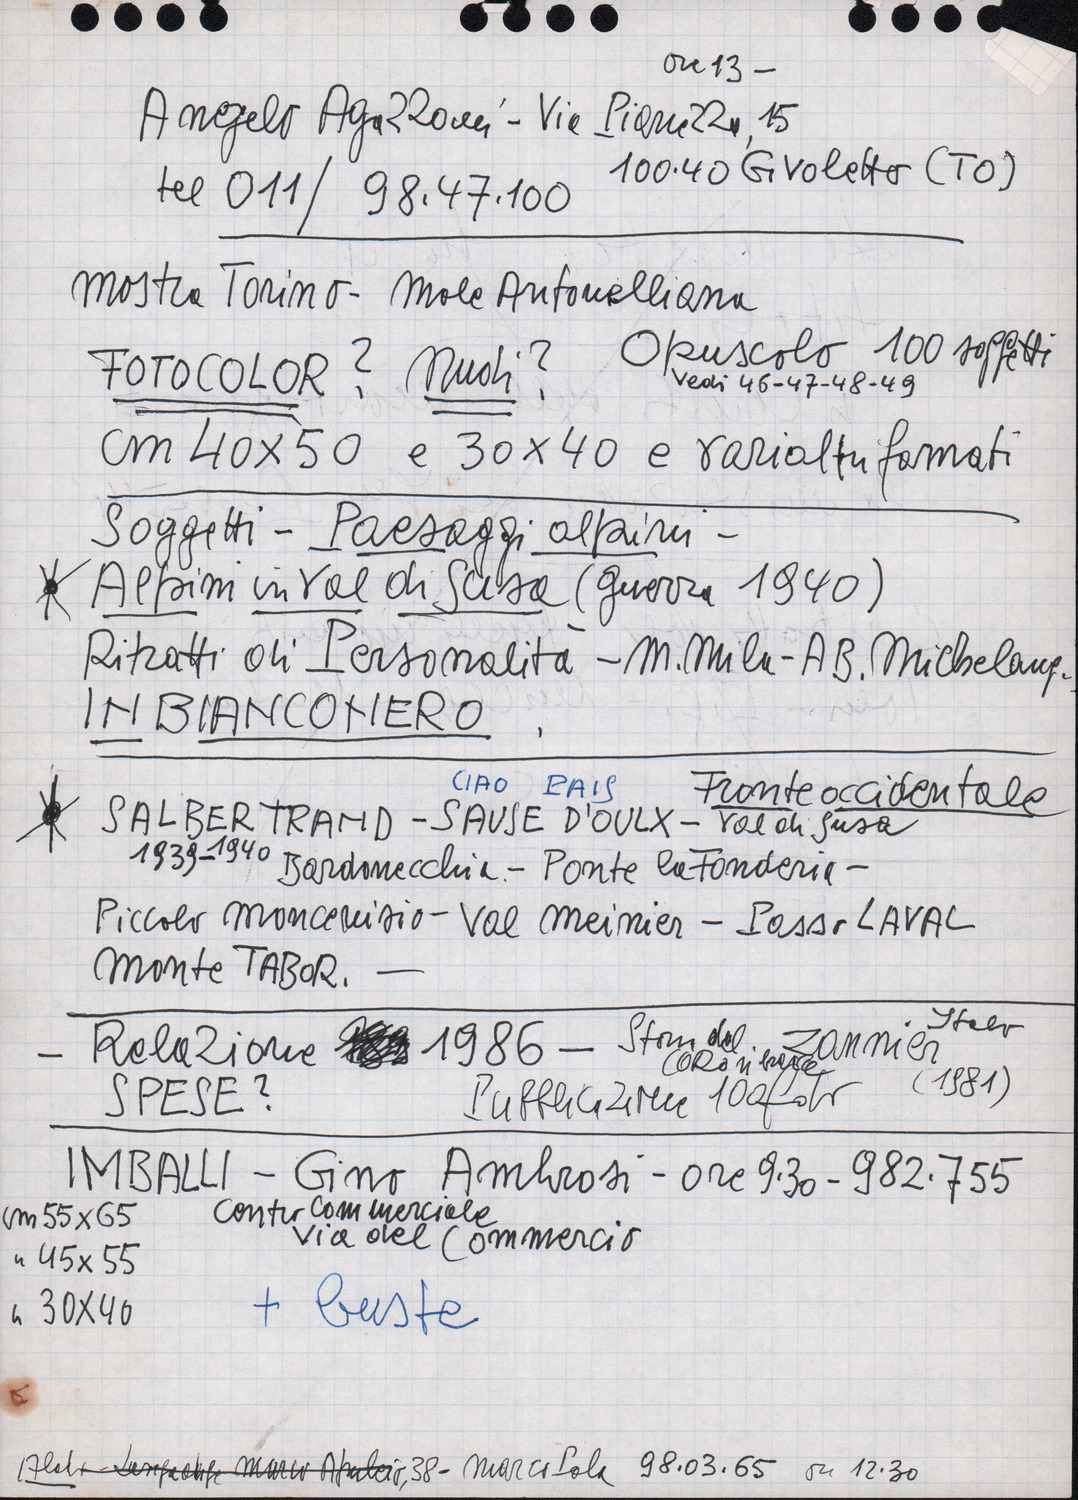 ore 13 -
Angelo Agazzani - Via Pianezza, 15
100.40 Givoletto (TO)
tel 011/ 98.47.100
mostra Torino - Mole Antonelliana
FOTOCOLOR? Nudi? Opuscolo 100 soggetti
vedi 46-47-48-49
cm 40x50 e 30x40 e vari altri formati
Soggetti - Paesaggi alpini -
Alpini in Val di Susa (guerra 1940)
Ritratti di Personalità - M. Mila - A B. Michelang.
IN BIANCONERO
CIAO PAIS Fronte occidentale
SALBERTRAND - SAUSE D'OULX - Val di Susa
1939-1940 Bardonecchia - Ponte la Fonderia -
Piccolo moncenisio - Val Meinier - Passo LAVAL
Monte TABOR. -
- Relazione 1986 - Storia del Zannier Italo
SPESE? Pubblicazione 100 foto (1981)
IMBALLI - Gino Ambrosi - ore 9.30 - 982.755
cm 55x65 Centro Commerciale
" 45x55 Via del Commercio
" 30x40 + buste
38 - Marco Pola 98.03.65 ore 12.30